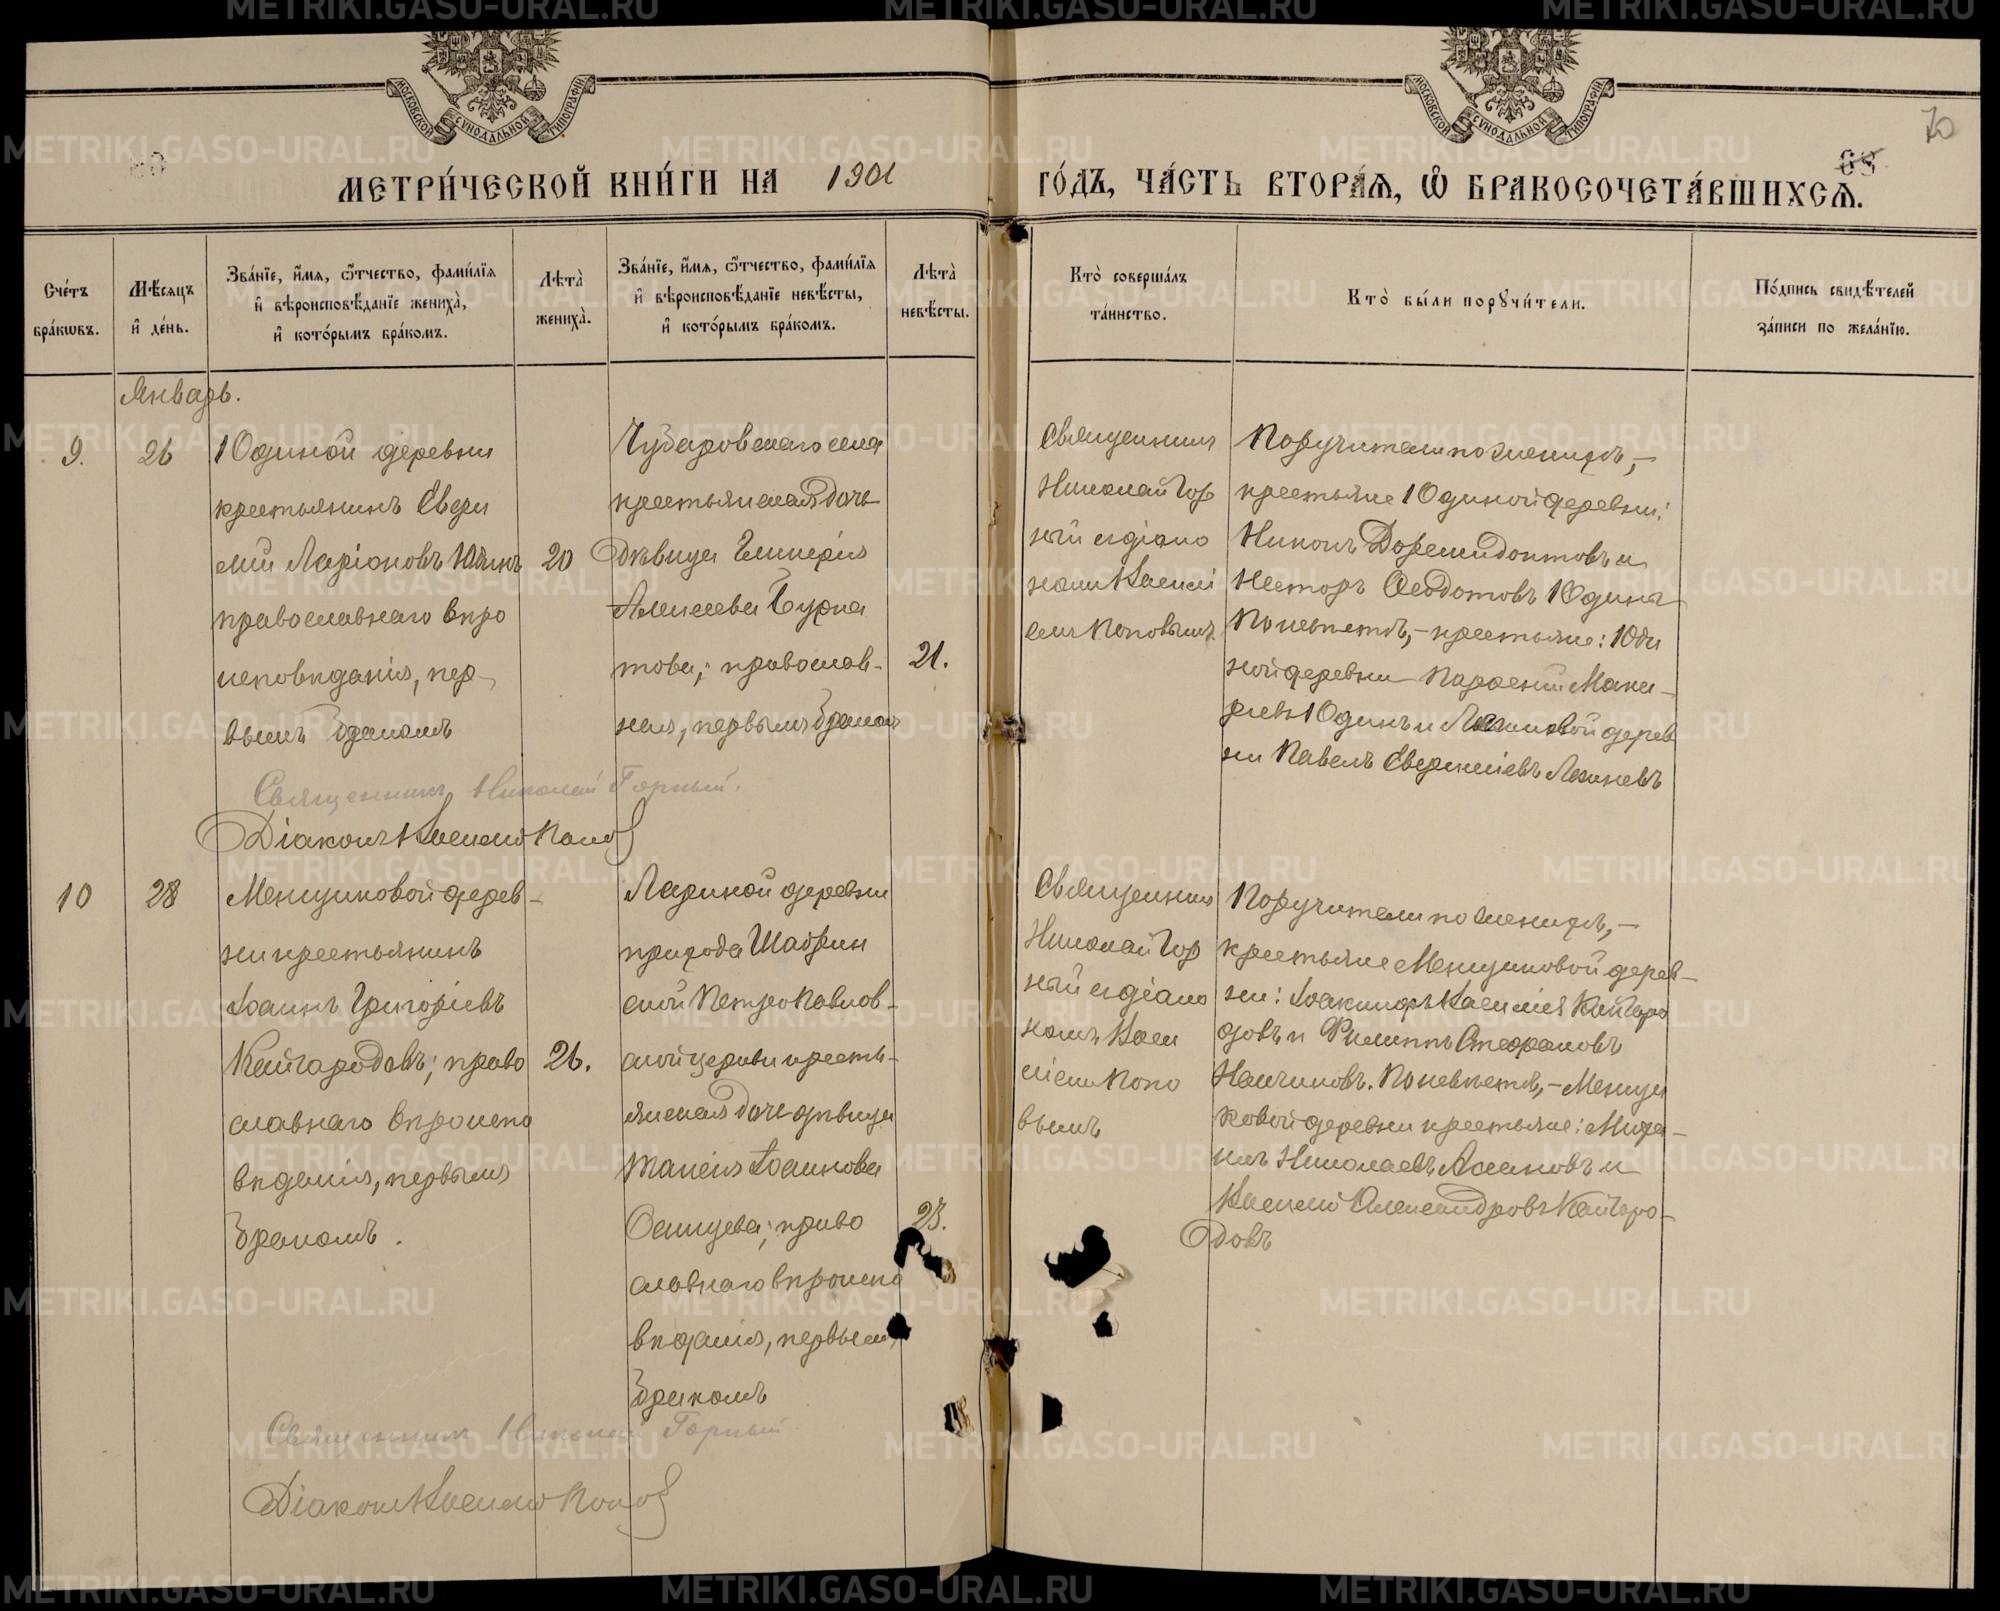 МОСКОВСКОЙ СѴНОДАЛЬНОЙ ТИПОГРАФІИ
МОСКОВСКОЙ СѴНОДАЛЬНОЙ ТИПОГРАФІИ
70
69
МЕТРИ́ЧЕСКОЙ КНИ́ГИ НА 1901 ГО́ДЪ, ЧА́СТЬ ВТОРА́Ѧ, Ѡ҆ БРАКОСОЧЕТА́ВШИХСѦ.
Сче́тъ бра́кѡвъ.
Мѣ́сѧцъ и҆ де́нь.
Зва́нїе, и҆́мѧ, ѻ҆́тчество, фами́лїѧ и҆ вѣроисповѣ́данїе жениха̀, и҆ кото́рымъ бра́комъ.
Лѣта̀ жениха̀.
Зва́нїе, и҆́мѧ, ѻ҆́тчество, фами́лїѧ и҆ вѣроисповѣ́данїе невѣ́сты, и҆ кото́рымъ бра́комъ.
Лѣта̀ невѣ́сты.
Кто̀ соверша́лъ та́инство.
Кто̀ бы́ли порꙋчи́тели.
По́дпись свидѣ́телей за́писи по жела́нїю.
Январь.
9.
26
Юдиной деревни
крестьянинъ Евфи
мій Ларіоновъ Юдинъ
православнаго вѣро
исповѣданія, пер-
вымъ бракомъ
20
Чубаровскаго села
крестьянская дочь
дѣвица Гликерія
Алексеева Бурма
това; православ-
ная, первымъ бракомъ
21.
Священникъ
Николай Гор
ный съ діако
номъ Васи
емъ Поповымъ
Поручители по женихѣ,-
крестьяне Юдиной деревни:
Никонъ Дормидонтовъ и
Несторъ Ѳедотовъ Юдинъ
По невѣстѣ,- крестьяне: Юди
ной деревни
Юдинъ и
ни Павелъ
Священникъ Николай Горный.
Діаконъ Василій Поповъ
10
28
Менщиковой дерев-
ни крестьянинъ
Іоаннъ Григоріевъ
Кайгородовъ; право
славнаго вѣроиспо
вѣданія, первымъ
бракомъ.
26.
Лариной деревни
прихода Шабрин
ской Петропавлов-
ской церкви кресть-
янская дочь дѣвица
Таисія Іоаннова
Осинцева; право
славнаго вѣроиспо
вѣданія, первымъ
бракомъ
23.
Священникъ
Николай Гор
ный съ діако
номъ Васи
ліемъ Попо
вымъ
Поручители по женихѣ,-
крестьяне Менщиковой дерев-
ни: Іоакимъ Василіевъ Кайгоро
довъ и Филиппъ Стефановъ
По невѣстѣ,- Менщи
ковой деревни крестьяне: Миха-
илъ Николаевъ Асановъ и
Василій Александровъ Кайгоро-
довъ
Священникъ Николай Горный
Діаконъ Василій Поповъ
METRIKI.GASO-URAL.RU